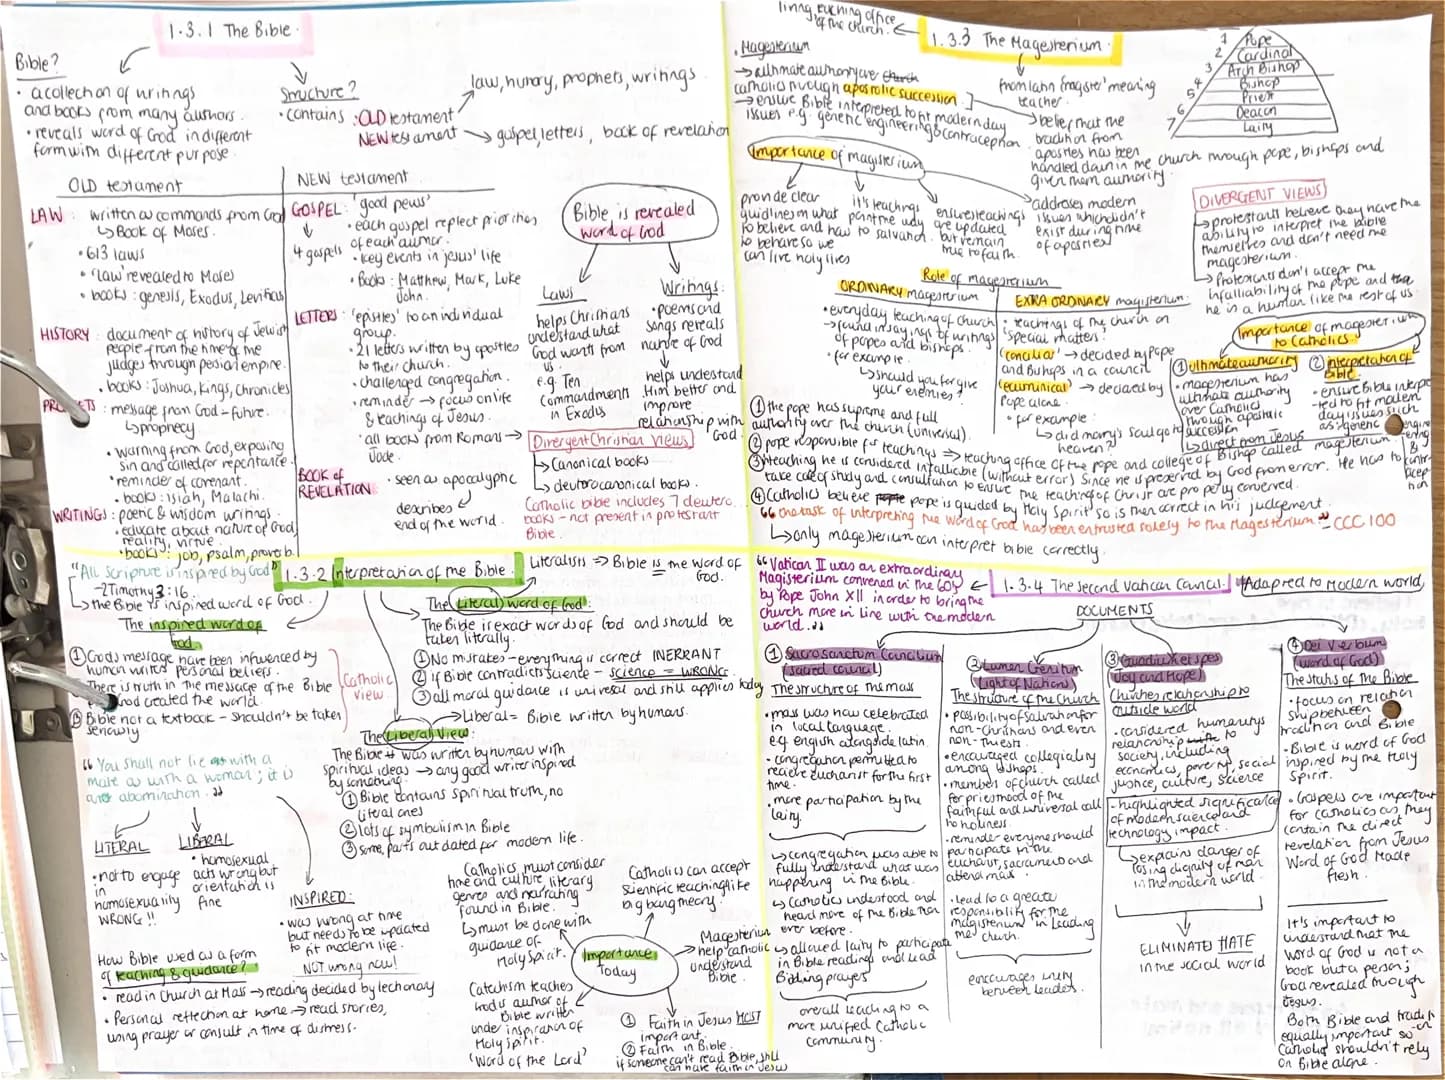 1.3.1 The Bible.
Bible?
• a collection of writings
and books from many authors.
• reveals word of God in different
form with different purpose.
Structure?
• contains : OLD testament
NEW testament
law, history, prophets, writings
gospel, letters, book of revelation
OLD testament
LAW : written as commands from God
↳ Book of Moses.
• 613 laws
• 'law' revealed to Moses
• books : genesis, Exodus, Leviticus
HISTORY : document of history of Jewish
people from the time of the
judges through persian empire.
• books : Joshua, Kings, Chronicles
PROPHETS : message from God – future.
↳ prophecy
• warning from God, exposing
sin and called for repentance.
• reminder of covenant.
• books : Isiah, Malachi.
WRITINGS : poetic & wisdom writings.
• educate about nature of God,
reality, virtue.
• books : job, psalm, proverb
NEW testament
GOSPEL : 'good news'
4 gospels
• each gospel reflect priorities
of each author.
• key events in jesus' life
• Books : Matthew, Mark, Luke
John.
LETTERS : 'epistles' to an individual
group.
• 21 letters written by apostles
to their church.
• challenged congregation.
• reminder → focus on life
& teachings of Jesus.
• all books from Romans →
Jude.
BOOK OF
REVELATION
• seen as apocalyptic
describes
end of the world.
Bible is revealed
word of God
Laws
helps Christians
understand what
God wants from
us.
e.g. Ten
Commandments
in Exodus
Writings :
• poems and
songs reveals
nature of God
helps understand
Him better and
improve
relationship with
God.
Divergent Christian Views
↳ Canonical books
↳ deutorocanonical books.
Catholic bible includes 7 deutero.
books – not present in protestant
Bible.
1.3.2 Interpretation of the Bible.
"All Scripture is inspired by God"
– 2 Timothy 3:16.
→ the Bible is inspired word of God.
The inspired word of
God.
① Gods message have been influenced by
human writers personal beliefs.
There is truth in the message of the Bible
God created the world.
③ Bible not a textbook – shouldn't be taken
seriously
Catholic
view.
Literalists => Bible is the word of
God.
The Literal word of God :
The Bible is exact words of God and should be
taken literally.
① No mistakes – everything is correct INERRANT
② if Bible contradicts science – science = WRONG.
③ all moral guidance is universal and still applies today
→ Liberal = Bible written by humans.
The Liberal View :
The Bible was written by human with
spiritual ideas → any good writer inspired
by something
① Bible contains spiritual truth, no
literal ones
② lots of symbolism in Bible
③ some parts outdated for modern life.
"You shall not lie with a
male as with a woman ; it is
an abomination."
LITERAL
• not to engage
in
homosexuality
WRONG !!
LIBERAL
• homosexual
acts wrong but
orientation is
fine
INSPIRED :
• was wrong at time
but needs to be updated
to fit modern life.
NOT wrong now!
How Bible used as a form
of teaching & guidance?
• read in Church at Mass → reading decided by lectionary
• Personal reflection at home → read stories,
using prayer or consult in time of distress.
Importance
today
Catholics must consider
time and culture, literary
genres and narrating
found in Bible.
↳ must be done with
guidance of
Holy Spirit.
Catholics can accept
scientific teaching like
big bang theory.
Magesterium
help catholic
understand
Bible.
Catechism teaches
God is author of
Bible written
under inspiration of
Holy Spirit.
'Word of the Lord'
① Faith in Jesus MOST
important.
② Faith in Bible.
if someone can't read Bible, still
can have faith in Jesus
1.3.3 The Magesterium.
living, teaching office
of the church.
• Magesterium
→ ultimate authority over church
catholic through apostolic succession.
→ ensure Bible interpreted to fit modern day
issues e.g. genetic engineering & contraception
from latin 'magister' meaning
teacher.
→ belief that the
tradition from
apostles has been
handed down in the church through pope, bishops and
given them authority.
1 Pope
2 Cardinal
3 Arch Bishop
4 Bishop
5 Priest
6 Deacon
7 Laity
Importance of magisterium
provide clear
guidlines on what
to believe and how
to behave so we
can live holy lives
it's teachings
point the way
to salvation.
ensures teachings
are updated
but remain
true to faith.
addresses modern
issues which didn't
exist during time
of apostles
DIVERGENT VIEWS
→ protestants believe they have the
ability to interpret the bible
themselves and don't need the
magesterium.
→ Protestants don't accept the
infallibility of the pope and
he is a human like the rest of us.
Role of magesterium
ORDINARY magesterium
• everyday teaching of church
→ found in sayings of writings
of popes and bishops.
• for example.
↳ should you forgive
your enemies?
EXTRA ORDINARY magisterium.
• teachings of the church on
special matters.
(conciliar) → decided by Pope
and Bishops in a council
(ecuminical) → decided by
Pope alone.
• for example :
↳ did mary's soul go to
heaven?
Importance of magesterium
to Catholics.
① ultimate authority
• magesterium has
ultimate authority
over Catholics
through apostolic
succession
↳ direct from Jesus
② interpretation of
Bible.
• ensure Bible interpre
-ted to fit modern
day issues such
as : genetic
engine
ering
&
contr-
acep
tion
① the pope has supreme and full
authority over the church (universal).
② pope responsible for teachings => teaching office of the pope and college of Bishop called magesterium
③ teaching he is considered infallible (without error) since he is preserved by God from error. He has to
take care of study and consultation to ensure the teaching of Christ are properly conveyed.
④ Catholics believe pope is guided by Holy Spirit so is then correct in his judgement.
"the task of interpreting the word of God has been entrusted solely to the Magesterium." – CCC 100
↳ only magesterium can interpret bible correctly.
1.3.4 The Second Vatican Council.
Adapted to Modern world,
"Vatican II was an extraordinary
Magisterium convened in the 60s
by Pope John XII in order to bring the
church more in line with the modern
world."
DOCUMENTS
① Sacrosanctum Concilium
(sacred council)
The structure of the mass
• mass was now celebrated
in local language.
e.g english alongside latin.
• congregation permitted to
recieve eucharist for the first
time.
• more participation by the
laity.
↳ congregation was able to
fully understand what was
happening in the Bible.
↳ Catholics understood and
heard more of the Bible than
ever before.
↳ allowed laity to participate
in Bible readings and lead
Bidding prayers
overall leading to a
more unified Catholic
community.
② Lumen Gentium
(Light of Nations)
The structure of the Church
• possibility of salvation for
non-christians and even
non-theists.
• encouraged collegiality
among bishops.
• members of church called
for priesthood of the
faithful and universal call
to holiness.
• reminder everyone should
participate in the
eucharist, sacraments and
attend mass.
• lead to a greater
responsibility for the
magisterium in leading
the church.
encourages unity
between leaders.
③ Gaudium et spes
(Joy and Hope)
Churches relationship to
outside world
• considered humanitys
relationship to
society, including
economics, poverty, social
justice, culture, science
• highlighted significance
of modern science and
technology impact.
→ explains danger of
losing dignity of man
in the modern world.
ELIMINATED HATE
in the social world
④ Dei Verbum
(word of God)
The status of the Bible
• focus on relation
ship between
tradition and Bible
• Bible is word of God
inspired by the Holy
Spirit.
• Gospels are important
for Catholics as they
contain the direct
revelation from Jesus
Word of God Made
flesh.
It's important to
understand that the
word of God is not a
book but a person ;
God revealed through
Jesus.
Both Bible and tradit
equally important so
Catholic shouldn't rely
on Bible alone.